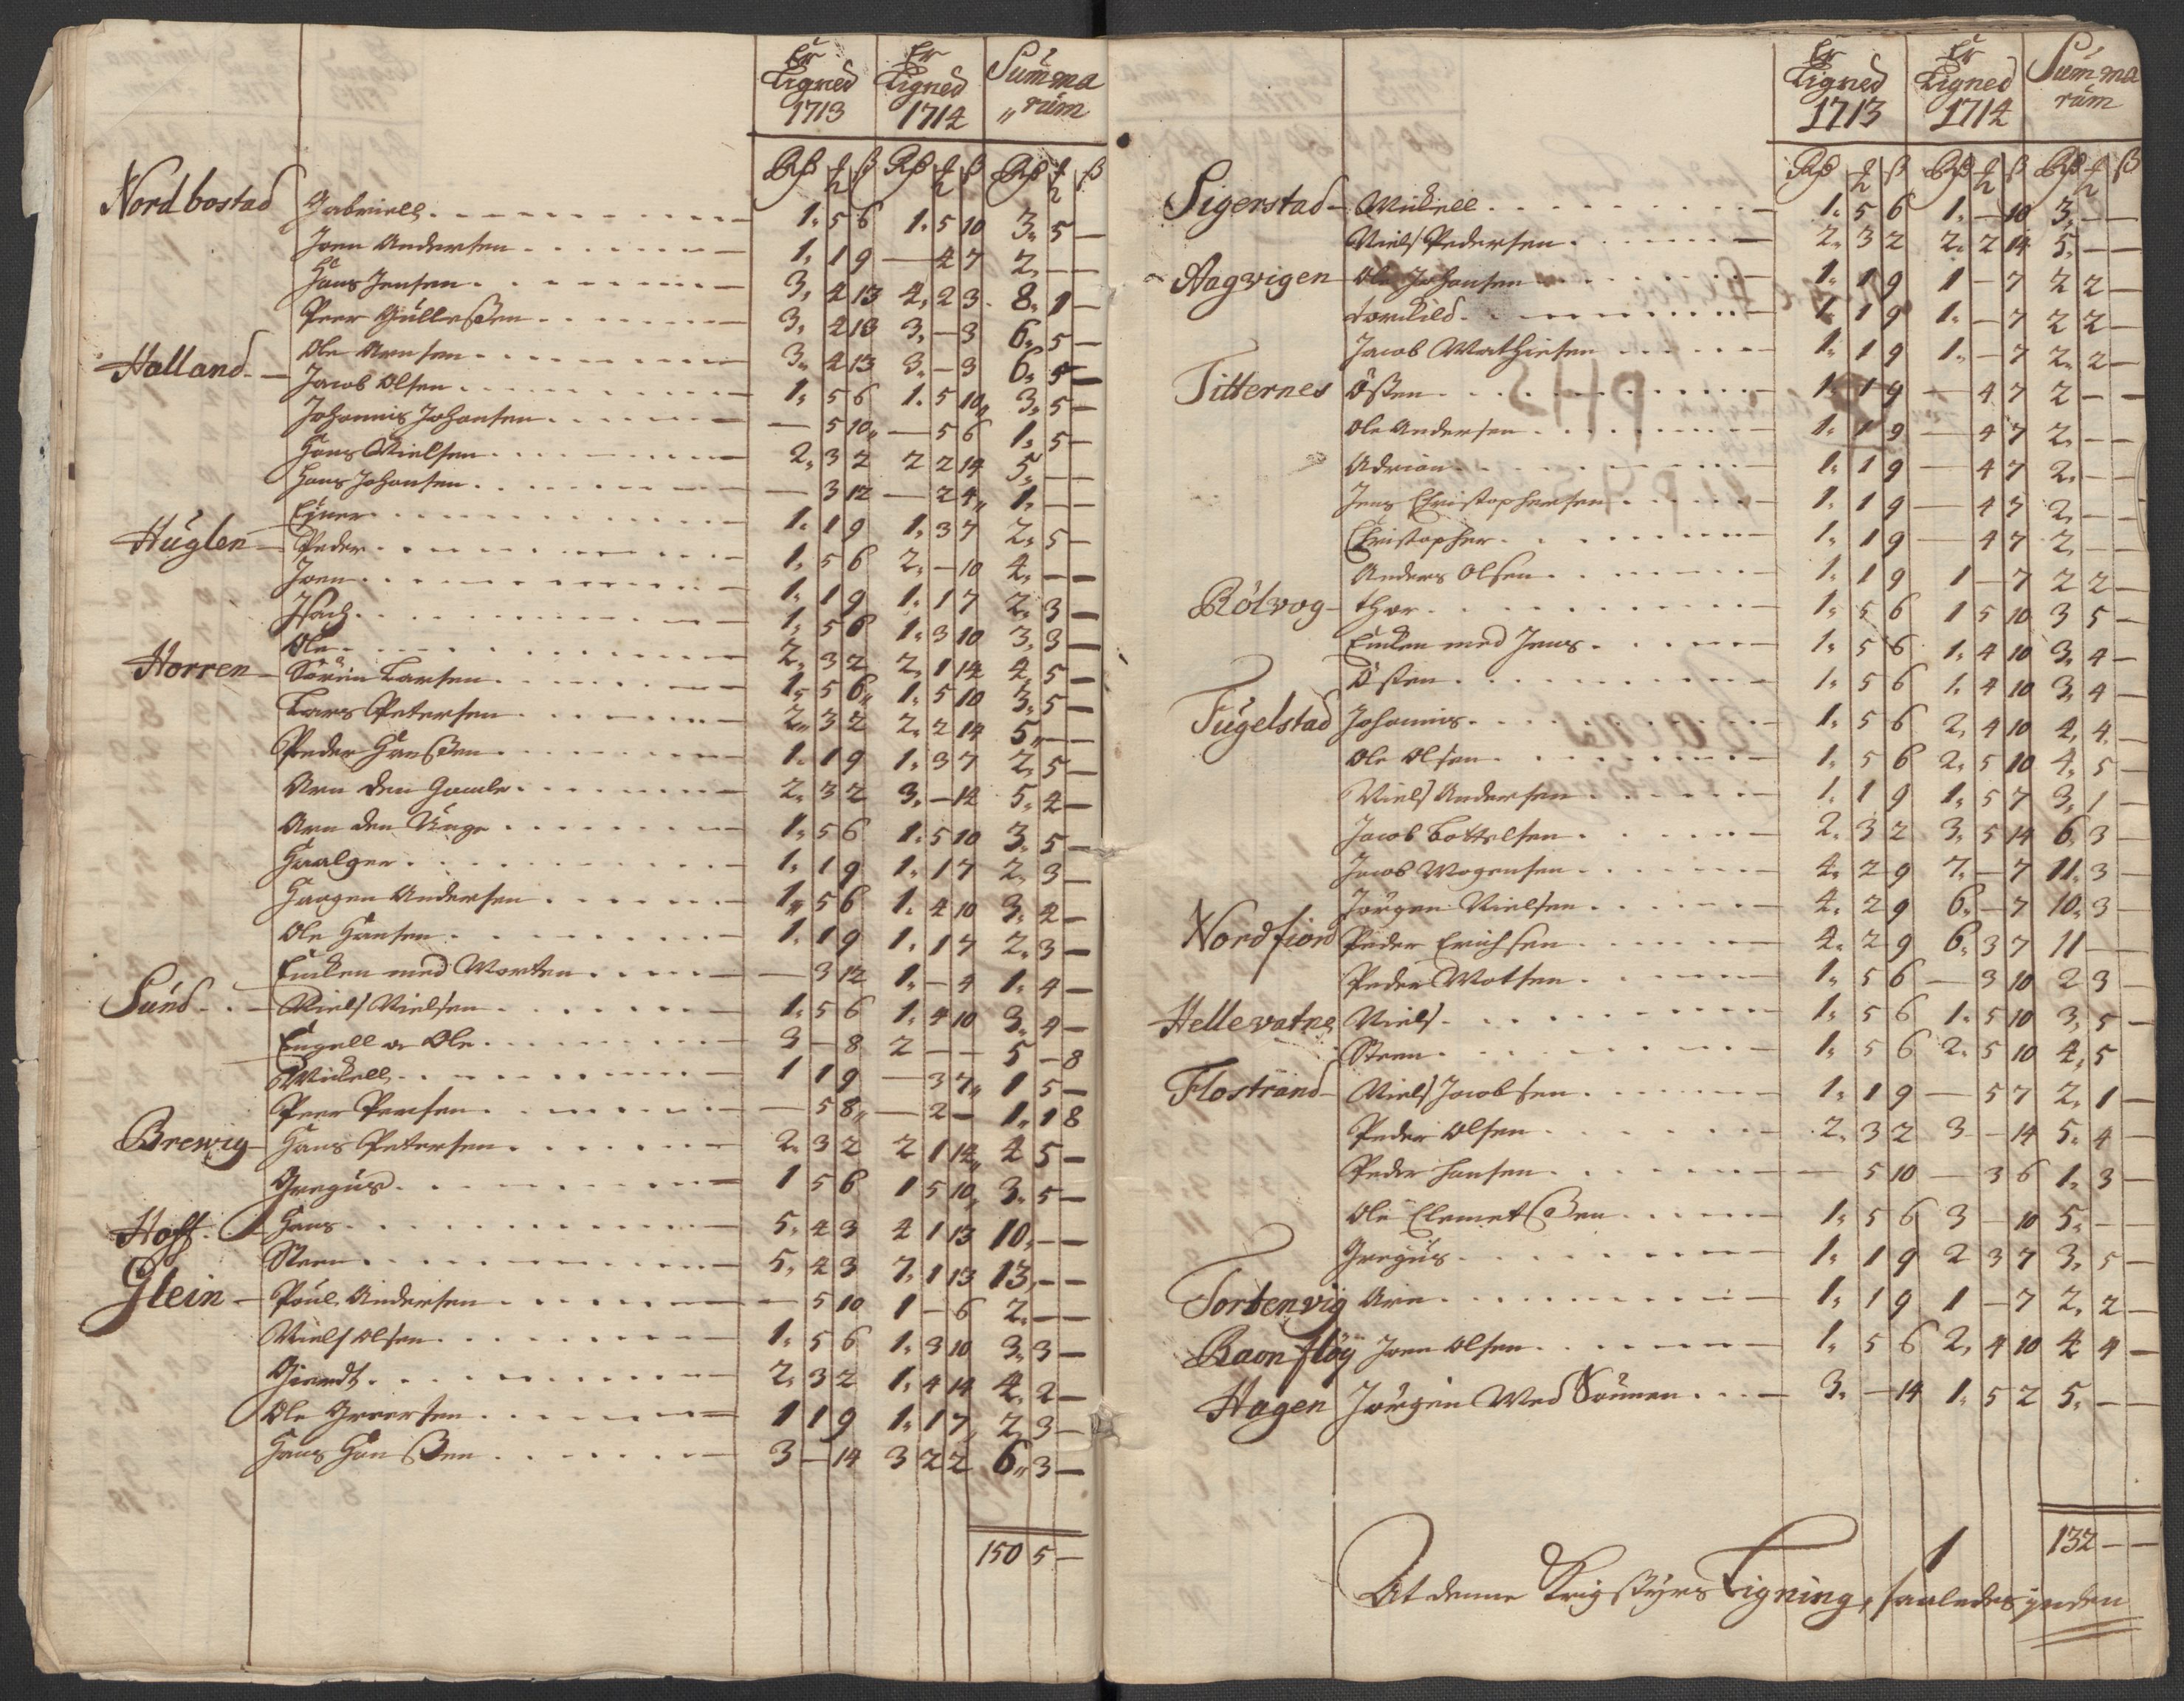 Er Ligned 1713 | Er Ligned 1714 | Summa „rüm
Rß ꝑ ß | Rß ꝑ ß | Rß ꝑ ß
Nordbostad Gabriell 1. 5 6 | 1. 5 10 | 3. 5 —
Joen Andersen 1. 1 9 | — 4 7 | 2. — —
Hans Jensen 3. 4 13 | 4. 2 3 | 8. 1 —
Peer Gülleßen 3. 4 13 | 3. — 3 | 6. 5 —
Halland Ole Arnsen 3. 4 13 | 3. — 3 | 6. 5 —
Jacob Olsen 1. 5 6 | 1. 5 10 | 3. 5 —
Johannis Johansen — 5 10 | — 5 6 | 1. 5 —
Hans Nielsen 2. 3 2 | 2 2 14 | 5. — —
Hans Johansen — 3 12 | — 2 4 | 1. — —
Hüglen Einer 1. 1 9 | 1. 3 7 | 2. 5 —
Peder 1. 5 6 | 2. — 10 | 4. — —
Joen 1. 1 9 | 1. 1 7 | 2. 3 —
Isach 1. 5 6 | 1. 3 10 | 3. 3 —
Ole 2. 3 2 | 2. 1 14 | 4. 5 —
Horren Sörin Larsen 1. 5 6 | 1. 5 10 | 3. 5 —
Lars Petersen 2. 3 2 | 2. 2 14 | 5. — —
Peder Hanßen 1. 1 9 | 1. 3 7 | 2. 5 —
Arn den Gamle 2. 3 2 | 3. — 14 | 5. 4 —
Arn den Unge 1. 5 6 | 1. 5 10 | 3. 5 —
Haalger 1. 1 9 | 1. 1 7 | 2. 3 —
Haagen Andersen 1. 5 6 | 1. 4 10 | 3. 4 —
Ole Hansen 1. 1 9 | 1. 1 7 | 2. 3 —
Encken med Morten — 3 12 | 1. — 4 | 1. 4 —
Sünd Niels Nielsen 1. 5 6 | 1. 4 10 | 3. 4 —
Engell o Ole 3 — 8 | 2 — — | 5 — 8
Mickell 1 1 9 | — 3 7 | 1 5 —
Peer Persen — 5 8 | — 2 — | 1. 1 8
Brewig Hans Petersen 2. 3 2 | 2 1 14 | 4 5 —
Gregüs 1 5 6 | 1 5 10 | 3. 5 —
Hoff Hans 5. 4 3 | 4 1 13 | 10. — —
Steen 5. 4 3 | 7. 1 13 | 13. — —
Glein Poül Andersen — 5 10 | 1 — 6 | 2. — —
Niels Olsen 1. 5 6 | 1. 3 10 | 3. 3 —
Giendt 2. 3 2 | 1. 4 14 | 4. 2 —
Ole Greersen 1 1 9 | 1. 1 7 | 2. 3 —
Hans Hanßen 3 — 14 | 3 2 2 | 6. 3 —
150 5 —
Er Ligned 1713 | Er Ligned 1714 | Summa rüm
Rß ꝑ ß | Rß ꝑ ß | Rß ꝑ ß
Sigerstad Mickell 1. 5 6 | 1. — 10 | 3. — —
Niels Pedersen 2. 3 2 | 2. 2 14 | 5. — —
Aagvigen Ole Johansen 1. 1 9 | 1 — 7 | 2 2 —
Torckild 1. 1 9 | 1. — 7 | 2 2 —
Jacob Mathiesen 1. 1 9 | 1. — 7 | 2. 2 —
Titternes Östen 1. 1 9 | — 4 7 | 2 — —
Ole Andersen 1. 1 9 | — 4 7 | 2. — —
Adrian 1. 1 9 | — 4 7 | 2. — —
Jens Christophersen 1. 1 9 | — 4 7 | 2. — —
Christopher 1. 1 9 | — 4 7 | 2. — —
Anders Olsen 1. 1 9 | 1 — 7 | 2 2 —
Rölvog Thor 1. 5 6 | 1 5 10 | 3 5 —
Encken med Jens 1. 5 6 | 1. 4 10 | 3. 4 —
Östen 1. 5 6 | 1. 4 10 | 3. 4 —
Fügelstad Johannis 1. 5 6 | 2. 4 10 | 4. 4. —
Ole Olsen 1. 5 6 | 2. 5 10 | 4. 5 —
Niels Andersen 1. 1 9 | 1. 5 7 | 3. 1 —
Jacob Bottelsen 2. 3 2 | 3. 5 14 | 6. 3 —
Jacob Mogensen 4. 2 9 | 7. — 7 | 11. 3 —
Jörgen Nielsen 4. 2 9 | 6. — 7 | 10. 3 —
Nordfiord Peder Erichsen 4. 2 9 | 6. 3 7 | 11 — —
Peder Motsen 1. 5 6 | — 3 10 | 2 3 —
Hellevatne Niels 1. 5 6 | 1. 5 10 | 3. 5 —
Steen 1. 5 6 | 2. 5 10 | 4. 5
Flostrand Niels Jacobsen 1. 1 9 | — 5 7 | 2. 1 —
Peder Olsen 2. 3 2 | 3 — 14 | 5. 4 —
Peder Hansen — 5 10 | — 3 6 | 1. 3 —
Ole Clemetßen 1. 5 6 | 3 — 10 | 5. — —
Gregüs 1. 1 9 | 2 3 7 | 3. 5 —
Torbenvig Arn 1. 1 9 | 1 — 7 | 2. 2 —
Baonfløÿ Joen Olsen 1. 5 6 | 2. 4 10 | 4 4 —
Hagen Jörgen Med Sönnen 3. — 14 | 1. 5 2 | 5. — —
132 — —
At denne Krigstyrs Ligning, saaledes ynden